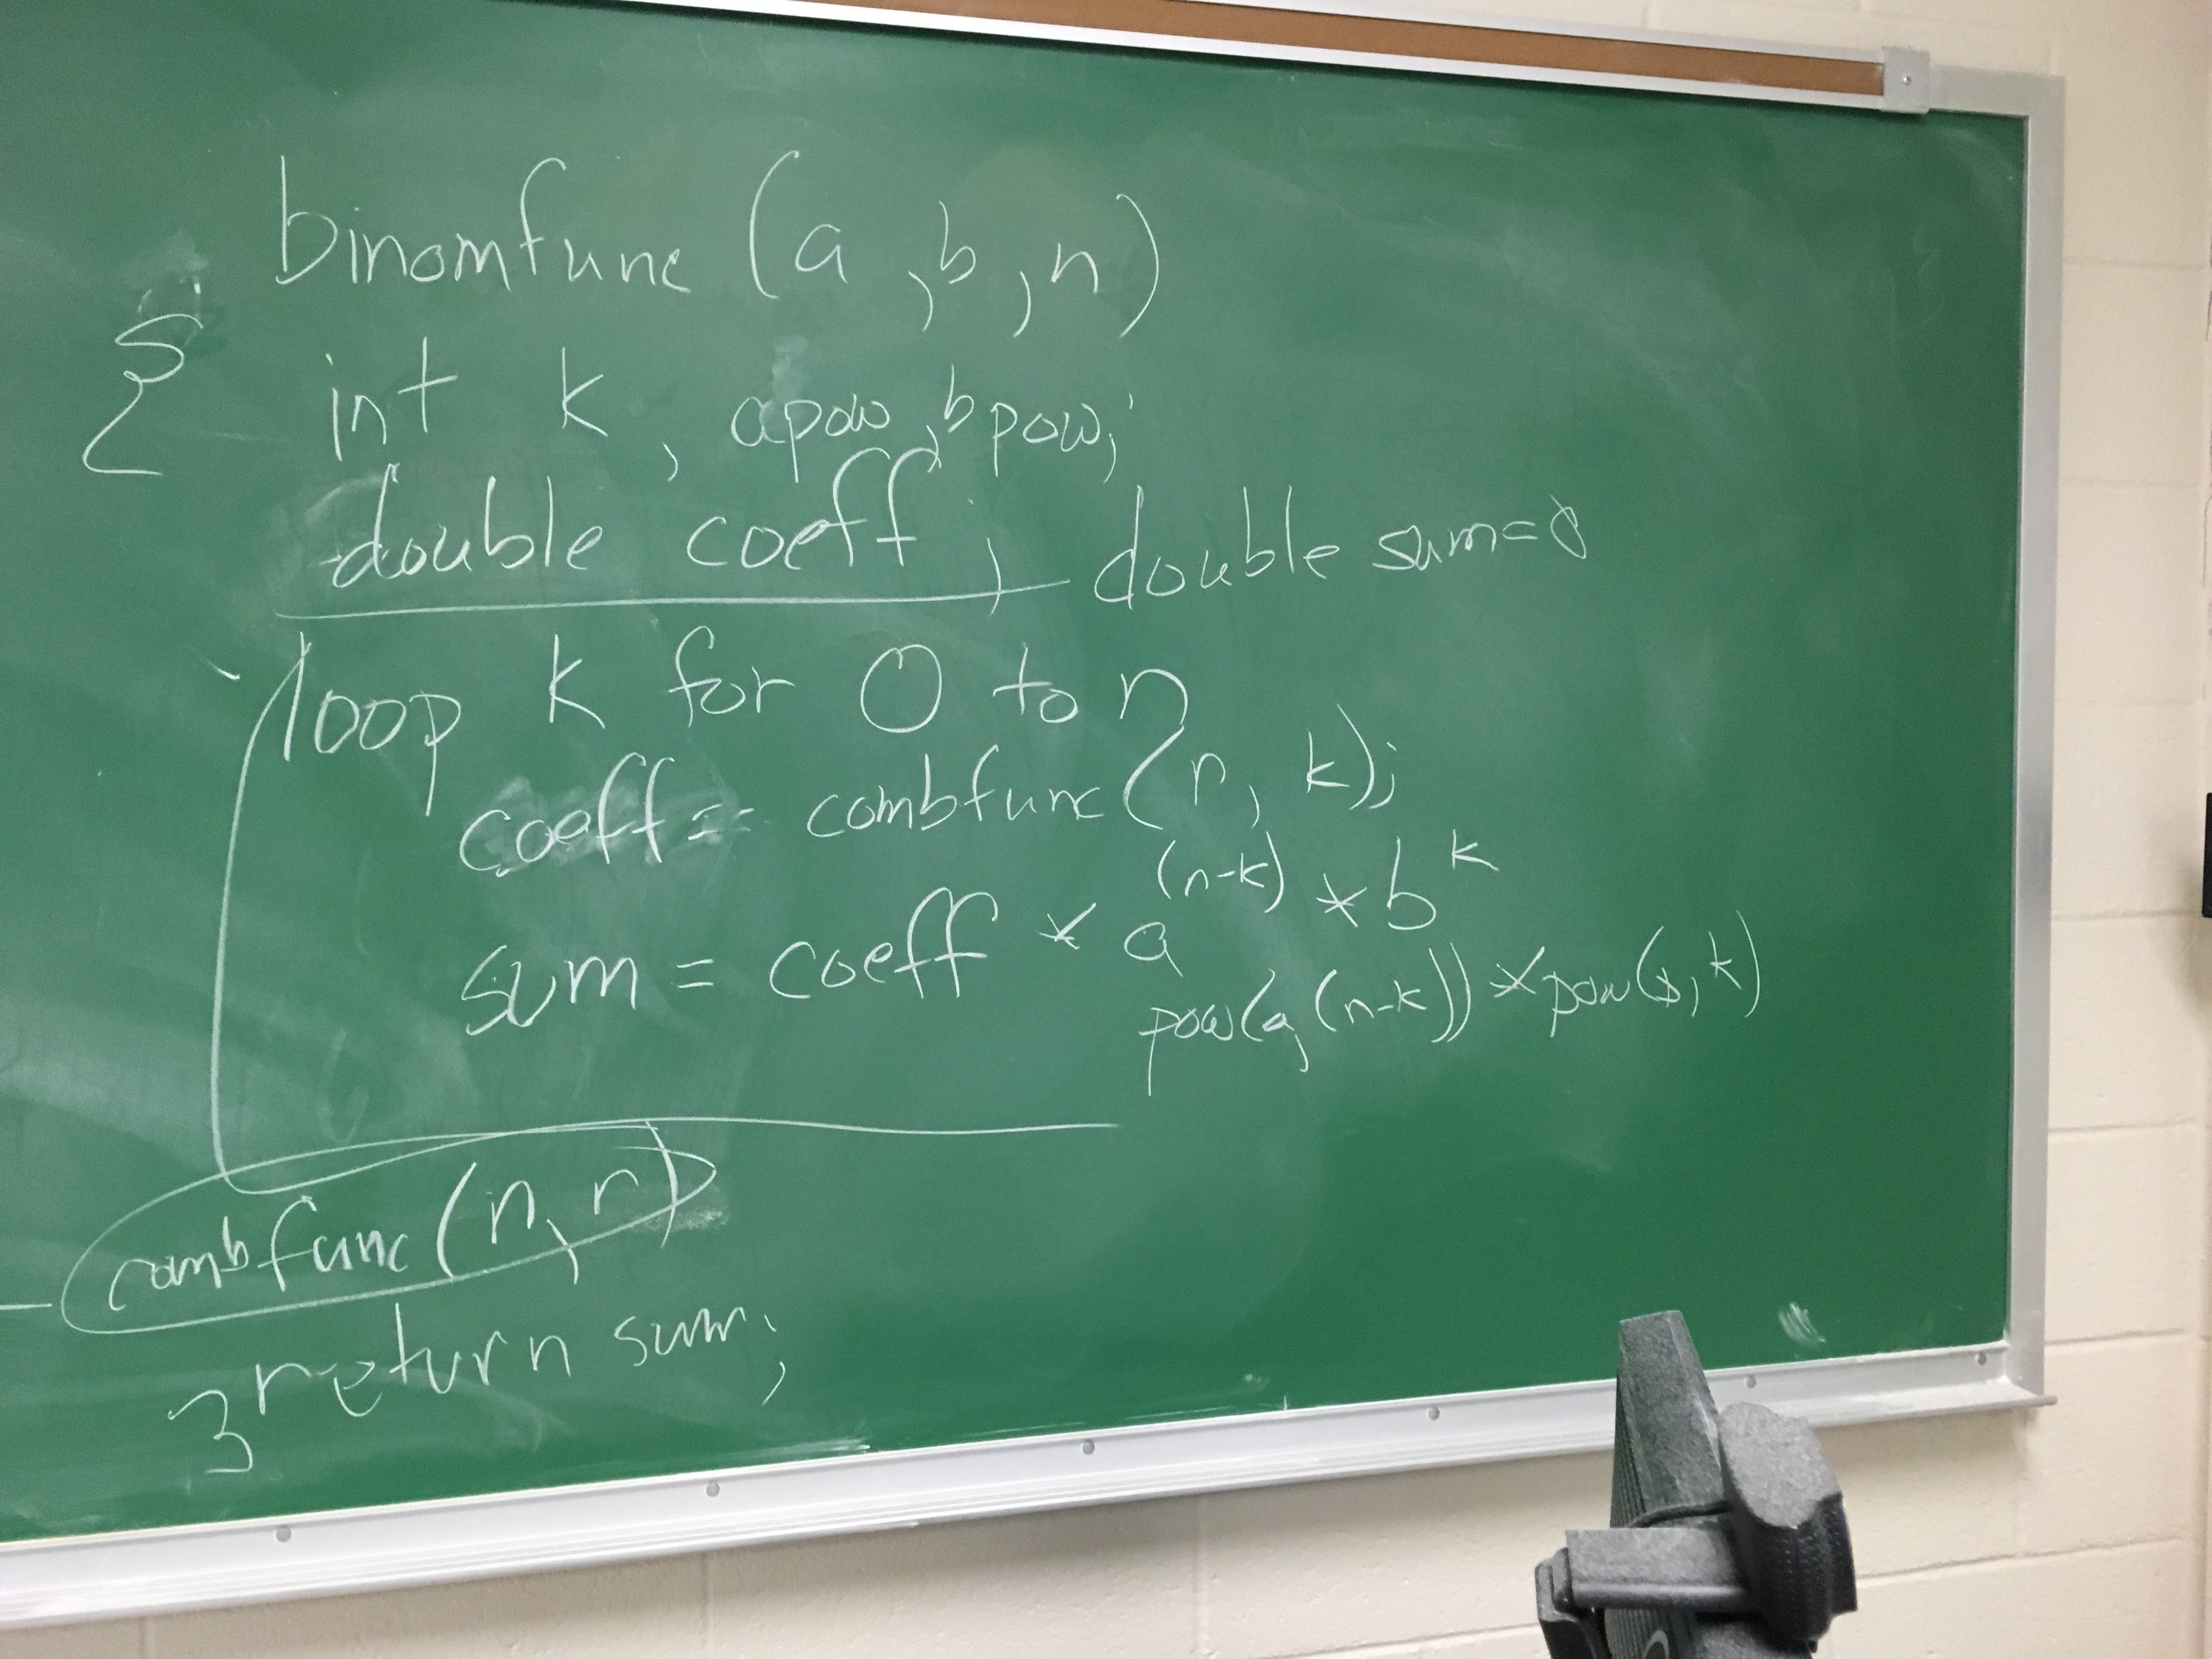 binomfunc (a, b, n)
{ int k, apow, bpow;
double coeff; double sum=0
loop k for 0 to n
coeff = combfunc(n, k);
sum = coeff * a^(n-k) * b^k
pow(a, (n-k)) * pow(b, k)
combfunc(n, r)
return sum;
}